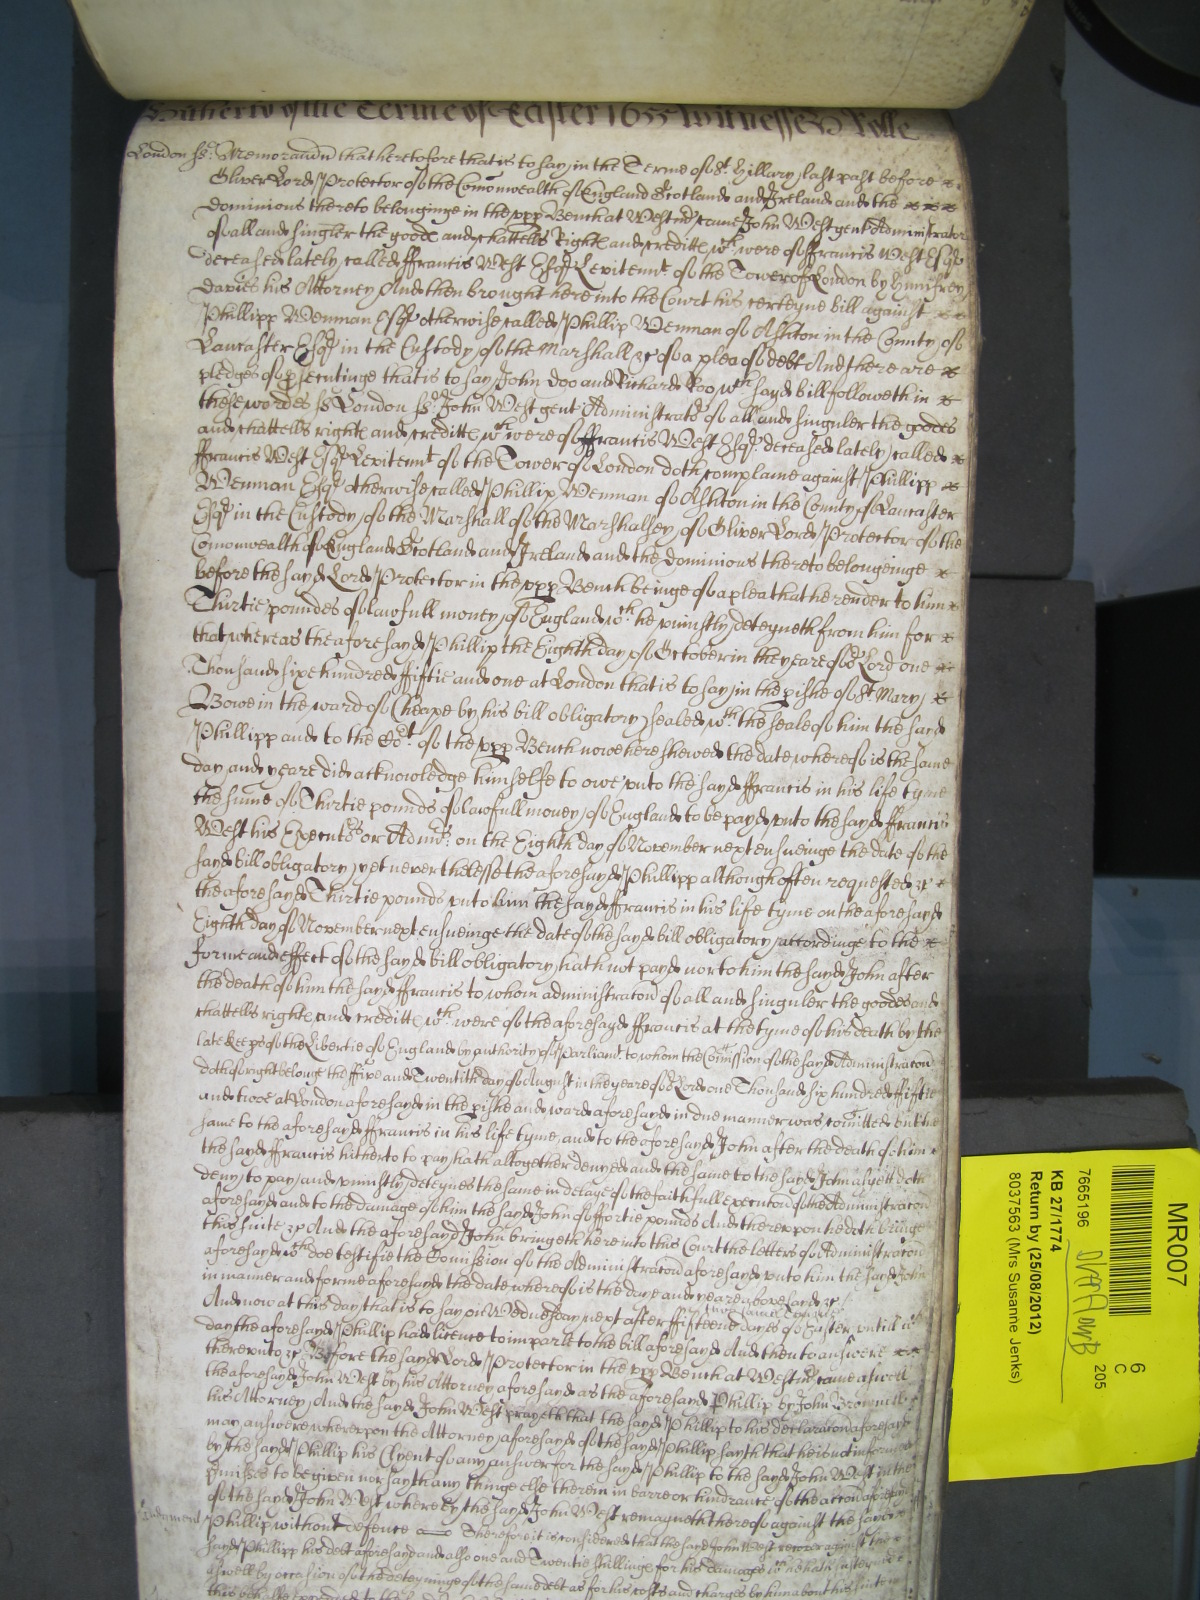 Hitherto of the Terme of Easter 1655 Witnesse H Rolle
London ss. Memorand that heretofore that is to say in the Terme of St. Hillary last past before
Oliver Lord Protector of the Comonwealth of England Scotland and Ireland and the
dominions thereto belonginge in the upp Bench at Westmr came John West gent Administrator
of all and singler the goode and chattells Right and creditt wch were of ffrancis West Esqr
deceased lately called ffrancis West Esqr Levitennt of the Tower of London by Humfrey
Davies his Attorney And then brought here into the Court his certeyne bill against
Phillipp Wenman Esqr otherwise called Phillip Wenman of Ashton in the County of
Lancaster Esqr in the Custody of the Marshall &c of a plea of debt And there are
pledges of psecutinge that is to say John Doo and Richard Roo wch sayd bill followeth in
these wordes ss London ss John West gent Administrator of all and singuler the goodes
and chattells right and creditt wch were of ffrancis West Esqr deceased lately called
ffrancis West Esqr Levitennt of the Tower of London doth complaine against Phillipp
Wenman Esqr otherwise called Phillip Wenman of Ashton in the County of Lancaster
Esqr in the Custody of the Marshall of the Marshalsey of Oliver Lord Protector of the
Comonwealth of England Scotland and Ireland and the dominions thereto belongeinge
before the sayd Lord Protector in the upp Bench beinge of a plea that he render to him
Thirtie poundes of lawfull money of England wch he uniustly deteyneth from him for
that whereas the aforesayd Phillip the Eighth day of October in the yeare of or Lord one
Thousand sixe hundred ffiftie and one at London that is to say in the pishe of St Mary
Bowe in the ward of Cheape by his bill obligatory sealed wth the seale of him the sayd
Phillipp and to the Cort of the upp Bench nowe here shewed the date whereof is the same
day and yeare did acknowledge himselfe to owe unto the sayd ffrancis in his life tyme
the sume of Thirtie pounds of lawfull money of England to be payd unto the sayd ffrancis
West his Executors or Admrs. on the Eighth day of November next ensueinge the date of the
sayd bill obligatory yet neverthelesse the aforesayd Phillipp although often requested &c
the aforesayd Thirtie pounds unto him the sayd ffrancis in his life tyme on the aforesayd
Eighth day of November next ensueinge the date of the sayd bill obligatory accordinge to the
forme and effect of the sayd bill obligatory hath not payd nor to him the sayd John after
the death of him the sayd ffrancis to whom administracon of all and singuler the goodes and
chattells right and creditt wch were of the aforesayd ffrancis at the tyme of his death by the
late Keeps of the Libertie of England by authority of Parliamt to whom the Comission of the sayd Administracon
doth of right belonge the ffive and Twentith day of August in the yeare of or Lord one Thousand six hundred ffiftie
and twoe at London aforesayd in the pishe and ward aforesayd in due manner was comitted but the
same to the aforesayd ffrancis in his life tyme and to the aforesayd John after the death of him
the sayd ffrancis hitherto to pay hath altogether denyed and the same to the sayd John as yett doth
deny to pay and uniustly deteynes the same in delaye of the faithfull execucon of the Administracon
aforesayd and to the damage of him the sayd John of ffortie pounds And thereupon he doth bringe
this suite &c And the aforesayd John bringeth here into this Court the letters of Administracon
aforesayd wch doe testifie the Comission of the Administracon aforesayd unto him the sayd John
in manner and forme aforesayd the date whereof is the day and yeare above sayd &c
And now at this day that is to say on Wednesday next after ffifteene dayes of Easter untill wch
day the aforesayd Phillip had licence to imparle to the bill aforesayd And then to answere
thereunto &c Before the sayd Lord Protector in the upp Bench at Westmr came aswell
the aforesayd John West by his Attorney aforesayd as the aforesayd Phillip by John
his Attorney And the sayd John West prayeth that the sayd Phillip to his declaracon aforesayd
may answere whereupon the Attorney aforesayd of the sayd Phillip sayth that he is not informed
by the sayd Phillip his Clyent of any answer for the sayd Phillip to the sayd John West in the
pmisses to be given nor sayth any thinge else therein in barre or hindrance of the accon aforesayd
of the sayd John West whereby the sayd John West remayneth thereof against the sayd
Judgment Phillip without defence Therefore it is considered that the sayd John West recover against the
sayd Phillipp his debt aforesayd and also one and Twentie shillinge for his damages wch he hath susteyned
aswell by occasion of the deteyninge of the same debt as for his costs and charges by him about his suite in
MR007
6
C
205
7665196
KB 27/1774
Return by (25/08/2012)
8037563 (Mrs Susanne Jenks)